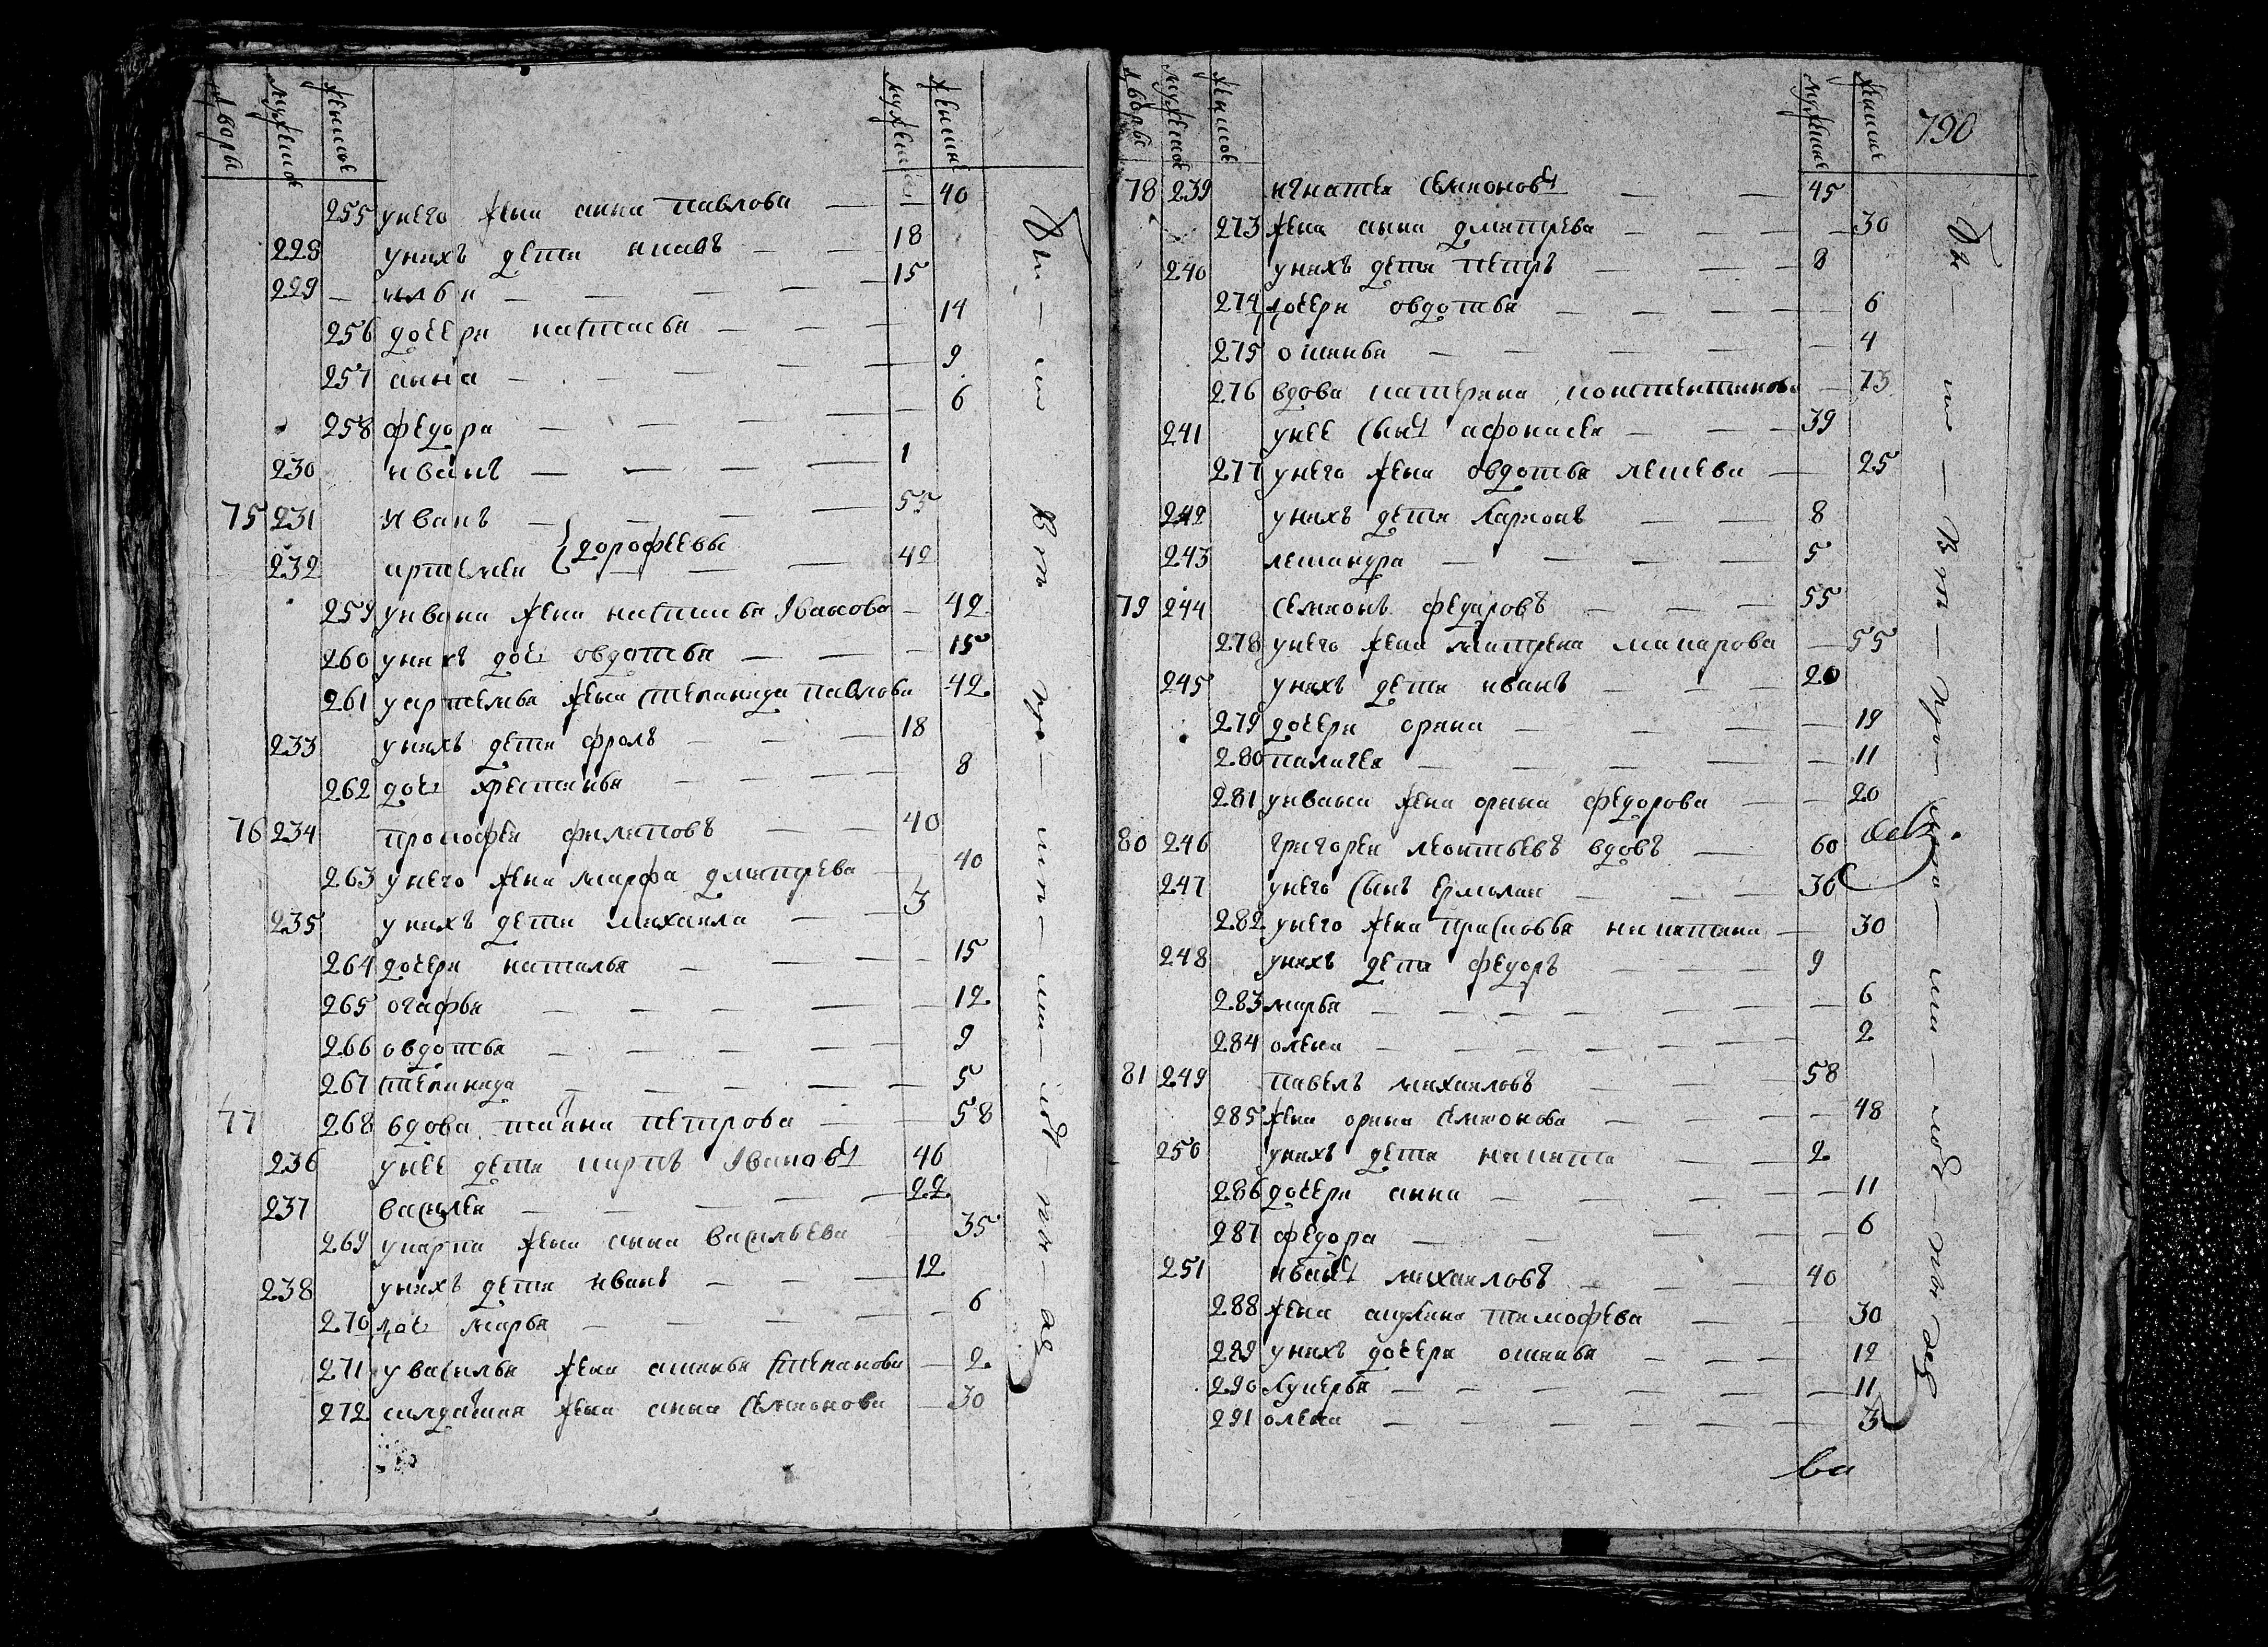 дворы мужеска женска мужеска женска
255 у него жена анна павлова — 40
228 у нихъ дети исаевъ — 18
229 илья — 15
256 дочери настасья — 14
257 анна — 9
258 федора — 6
230 иванъ — 1
75 231 Иванъ — 55
дорофеевы
232 артемеи — 42
259 у ивана жена настасья Iванова — 42
260 у нихъ дочь овдотья — 15
261 у артемья жена степанида павлова 42
233 у нихъ дети фролъ — 18
262 дочь христинья — 8
76 234 прокофеи филатовъ — 40
263 у него жена марфа дмитрева — 40
235 у нихъ дети михаила — 3
264 дочери наталья — 15
265 огафья — 12
266 овдотья — 9
267 степанида — 5
77 268 вдова татьяна петрова — 58
236 у нее дети карпъ Iвановъ 46
237 василеи — 22
269 у карпа жена анна васильева 35
238 у нихъ дети иванъ — 12
270 дочь марья — 6
271 у василья жена степанова — 2
272 салдатка жена анна семионова — 30
дворы мужеска женска мужеска женска
790
78 239 игнатеи семионовъ — 45
273 жена анна дмитрева — 30
240 у нихъ дети петръ — 8
274 дочери овдотья — 6
275 — 4
276 вдова катерина констентинова — 73
241 у нее сынъ афонасеи — 39
277 у него жена овдотья — 25
242 у нихъ дети — 8
243 — 5
79 244 семионъ федаровъ — 55
278 у него жена матрена макарова — 55
245 у нихъ дети иванъ — 20
279 дочери орина — 19
280 палагея — 11
281 у ивана жена орина федорова — 20
80 246 григореи леонтьевъ вдовъ — 60
247 у него сынъ ермолаи — 36
282 у него жена прасковья никитина — 30
248 у нихъ дети федоръ — 9
283 марья — 6
284 олена — 2
81 249 павелъ михаиловъ — 58
285 жена орина семионова — 48
250 у нихъ дети никита — 2
286 дочери анна — 11
287 федора — 6
251 иванъ михаиловъ — 40
288 жена акулина тимофева — 30
289 у нихъ дочери — 12
290 лукерья — 11
291 олена — 3